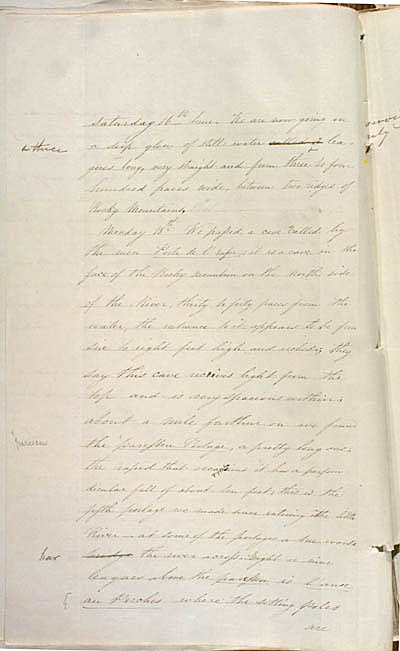 Saturday 16th June. We are now going in
a deep glen of still water lea-
& three
gues long, very straight and from three to four
hundred paces wide, between two ridges of
Rocky Mountains,
Monday 18th. We passed a cave called by
the men it is a cave in the
face of the Rocky mountain on the North side
of the River, thirty to forty paces from the
water, the entrance to it appears to be from
six to eight feet high and arched; they
say this cave receives light from the
top and is very spacious within;
about a mile further on we found
the Portage, a pretty long one.
the rapid that occasions it has a perpen
dicular fall of about ten feet; this is the
fifth portage we made since entering the little
River at some of the portages a bear would
the river across. Eight or nine
leagues above the is L'anse
au Perches where the sitting poles
are